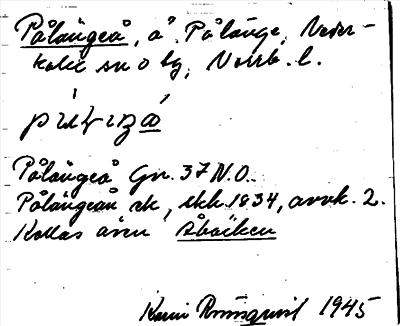 Pålängeå, å Pålänge, Neder-
kalix sn o tg, Norrb. l.
Pålängeå Gn. 37 N.O.
Pålängeån ek, ekk. 1834, avvk. 2.
Kallas även Åbäcken
1945